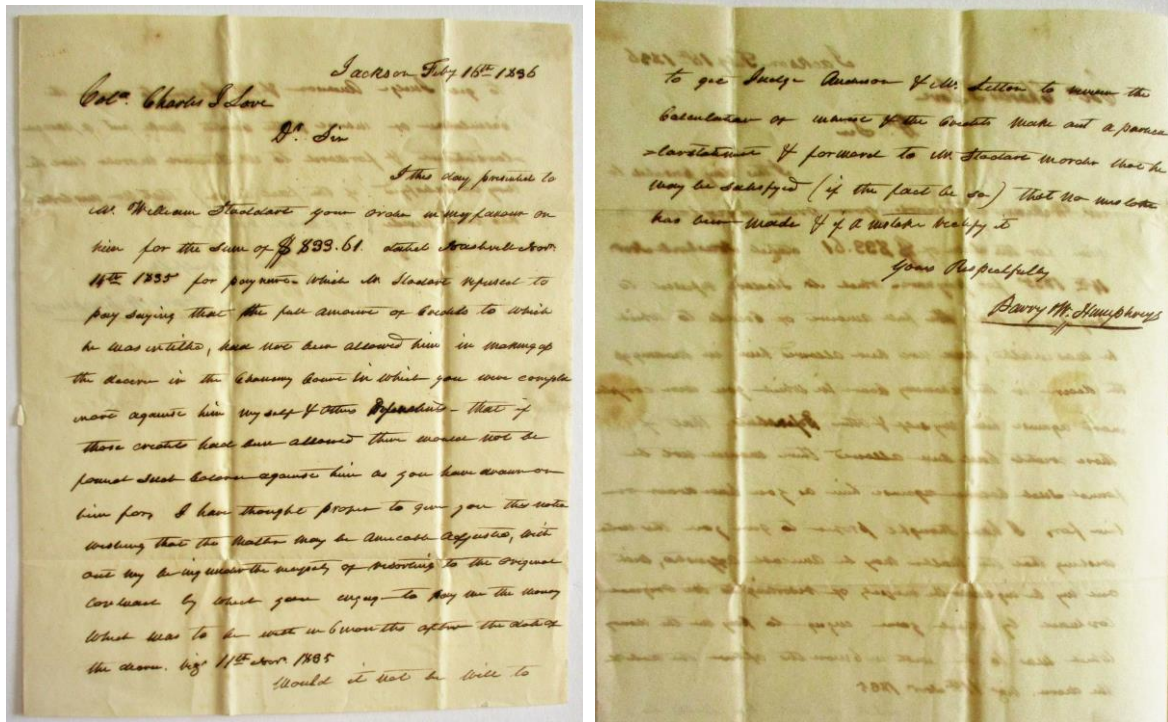 Jackson Feby 16th 1836
Colo. Charles J Love
Dr. Sir
I this day presented to
Mr. William Stoddart your order in my favour on
him for the Sum of $ 899.61 dated Nashville Novr.
11th 1835 for payment which Mr Stodart refused to
pay saying that the full amount of Credits to which
he was intitled, had not been allowed him in making up
the decree in the Chancery Court in which you were compla
nant against him my self & others Defendants - that if
those credits had been allowed there would not be
found such balance against him as you have drawn on
him for, I have thought proper to give you this notice
wishing that the Matter may be Amicable Adjusted, with
out my being under the necessity of resorting to the original
Covenant by which you engag to pay me the money
which was to be with in 6 months after the date of
the decree. viz 11th Novr. 1835
Would it not be well to
to get Judge Anderson & Mr. Litton to review the
Calculation of interest & the Credits make out a particu
=lar statement & forward to Mr Stodart in order that he
may be satisfyed (if the fact be so) that no mistake
has been made & if a mistake rectify it
Yours Respectfully
Parry W. Humphreys